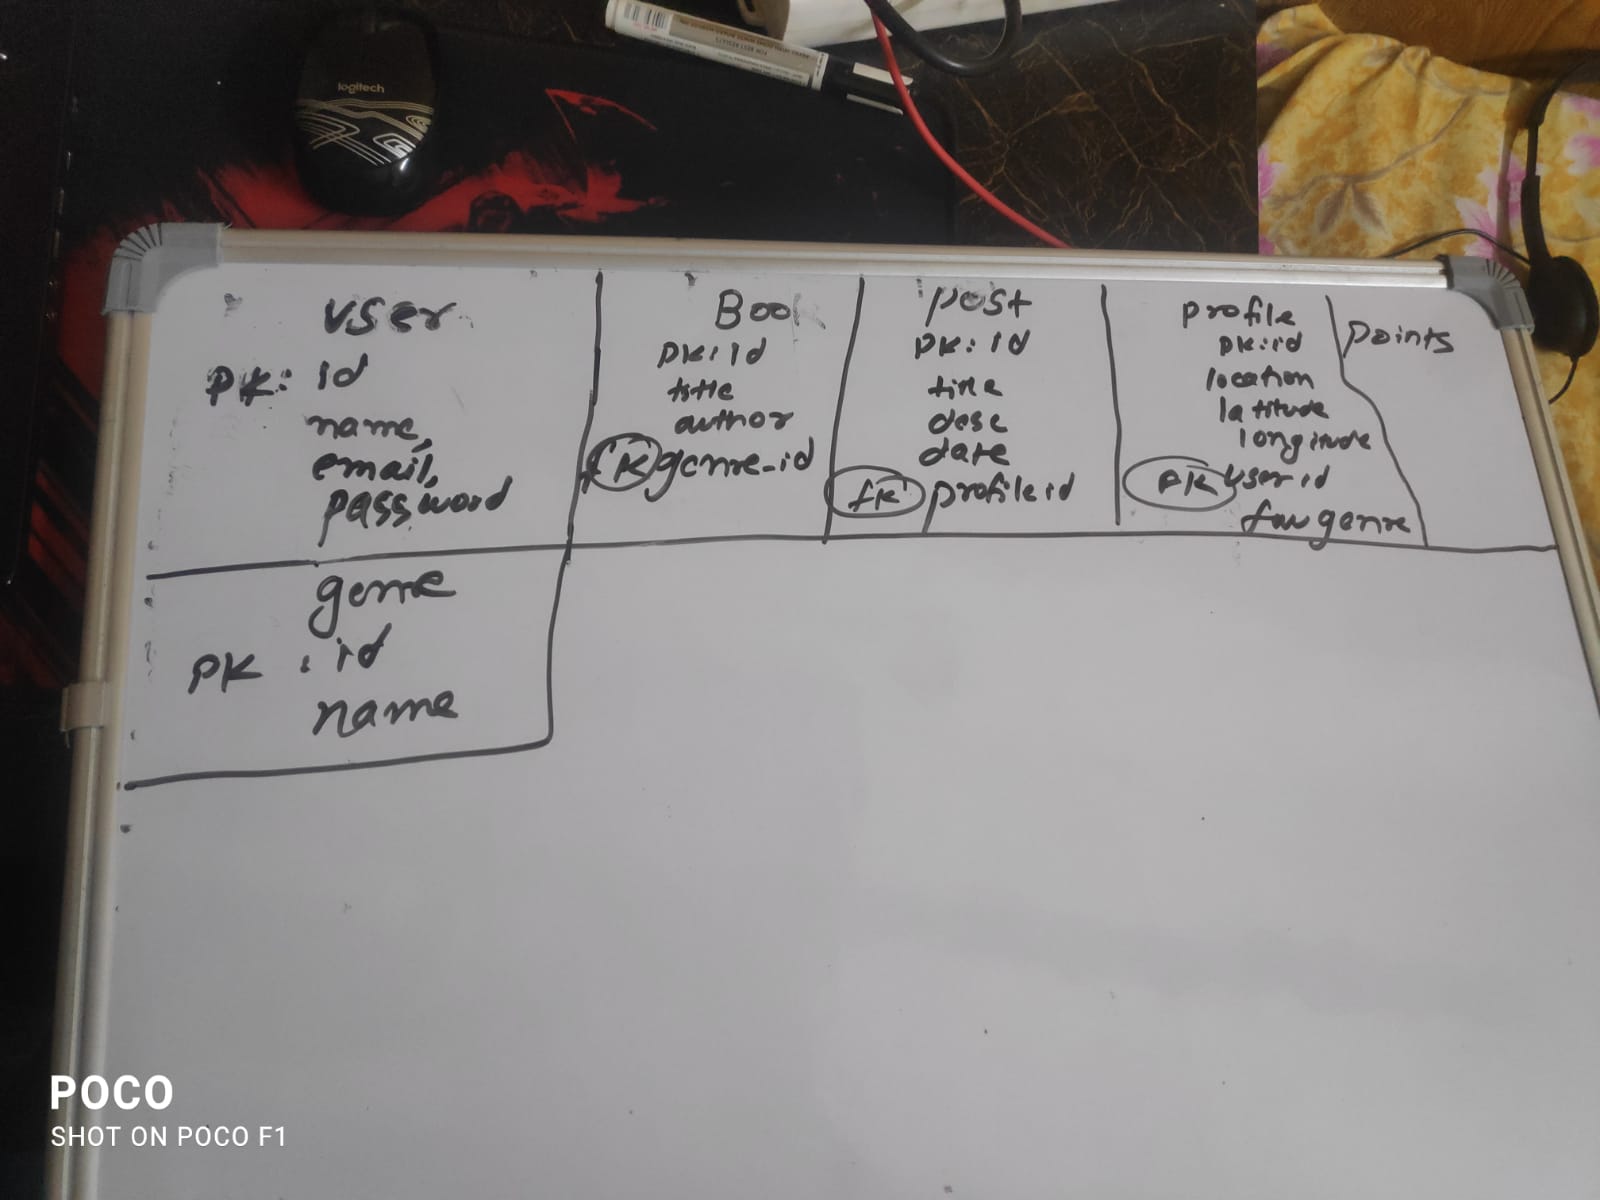 logitech
FOR BEST RESULTS
user
PK: id
name,
email,
password
Book
PK: Id
title
author
FK genre-id
post
PK: Id
title
desc
date
fk profile id
profile
PK: id
location
latitude
longitude
FK user id
fav genre
points
genre
PK : id
name
POCO
SHOT ON POCO F1